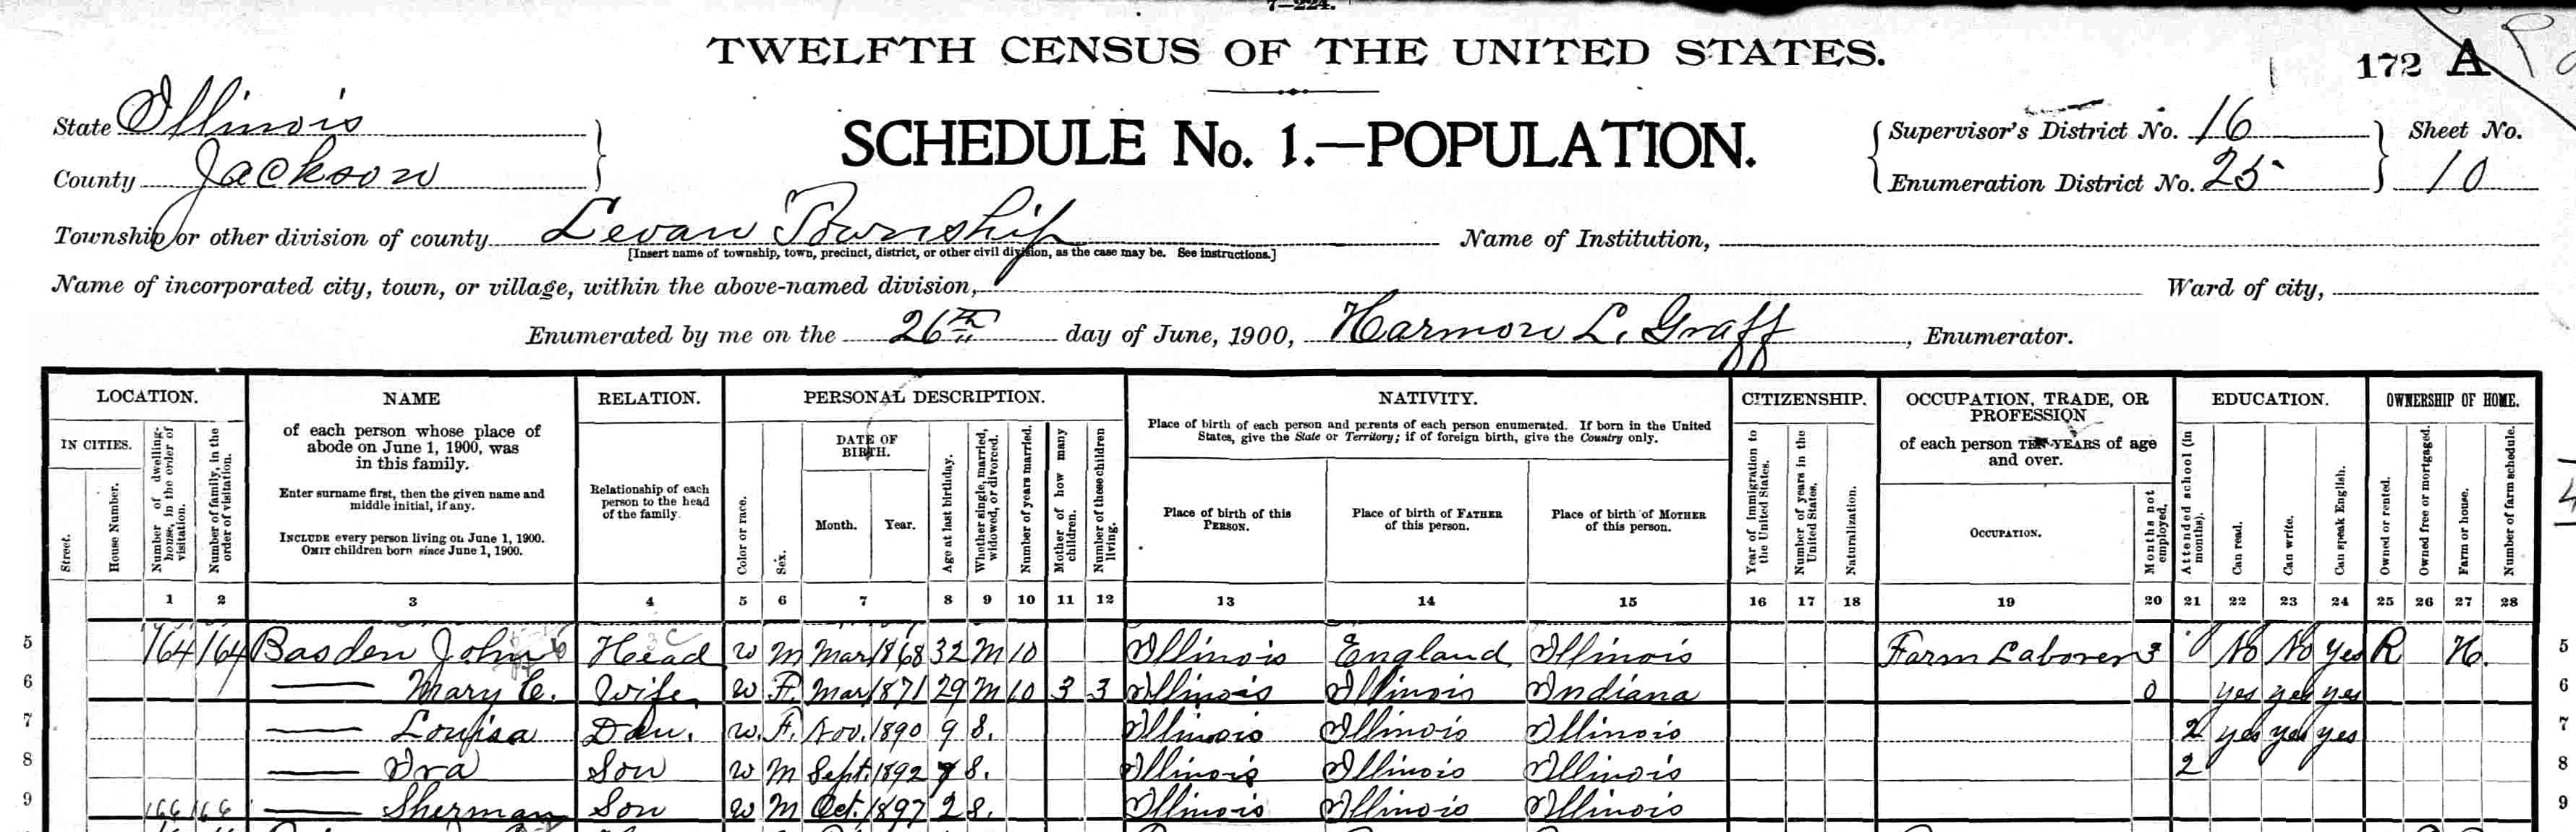 7—224.
TWELFTH CENSUS OF THE UNITED STATES.
172 A
State Illinois
County Jackson
SCHEDULE No. 1.—POPULATION.
Supervisor's District No. 16
Enumeration District No. 25
Sheet No.
10
Township or other division of county Levan Township
[Insert name of township, town, precinct, district, or other civil division, as the case may be. See instructions.]
Name of Institution,
Name of incorporated city, town, or village, within the above-named division,
Ward of city,
Enumerated by me on the 26th day of June, 1900, Harmon L. Graff, Enumerator.
LOCATION.
IN CITIES.
Street.
House Number.
Number of dwelling-house, in the order of visitation.
Number of family, in the order of visitation.
NAME
of each person whose place of
abode on June 1, 1900, was
in this family.
Enter surname first, then the given name and
middle initial, if any.
INCLUDE every person living on June 1, 1900.
OMIT children born since June 1, 1900.
RELATION.
Relationship of each
person to the head
of the family.
PERSONAL DESCRIPTION.
Color or race.
Sex.
DATE OF
BIRTH.
Month. Year.
Age at last birthday.
Whether single, married, widowed, or divorced.
Number of years married.
Mother of how many children.
Number of these children living.
NATIVITY.
Place of birth of each person and parents of each person enumerated. If born in the United
States, give the State or Territory; if of foreign birth, give the Country only.
Place of birth of this
PERSON.
Place of birth of FATHER
of this person.
Place of birth of MOTHER
of this person.
CITIZENSHIP.
Year of immigration to the United States.
Number of years in the United States.
Naturalization.
OCCUPATION, TRADE, OR
PROFESSION
of each person TEN YEARS of age
and over.
OCCUPATION.
Months not employed.
EDUCATION.
Attended school (in months).
Can read.
Can write.
Can speak English.
OWNERSHIP OF HOME.
Owned or rented.
Owned free or mortgaged.
Farm or house.
Number of farm schedule.
1 2 3 4 5 6 7 8 9 10 11 12 13 14 15 16 17 18 19 20 21 22 23 24 25 26 27 28
5 164 164 Basden John Head W M Mar 1868 32 M 10 Illinois England Illinois Farm Laborer 3 No No Yes R H. 5
6 —— Mary E. Wife W F. Mar 1871 29 M 10 3 3 Illinois Illinois Indiana 0 yes yes yes 6
7 —— Louisa Dau. W. F. Nov. 1890 9 S. Illinois Illinois Illinois 2 yes yes yes 7
8 —— Ira Son W M Sept. 1892 7 S. Illinois Illinois Illinois 2 8
9 —— Sherman Son W M Oct. 1897 2 S. Illinois Illinois Illinois 9